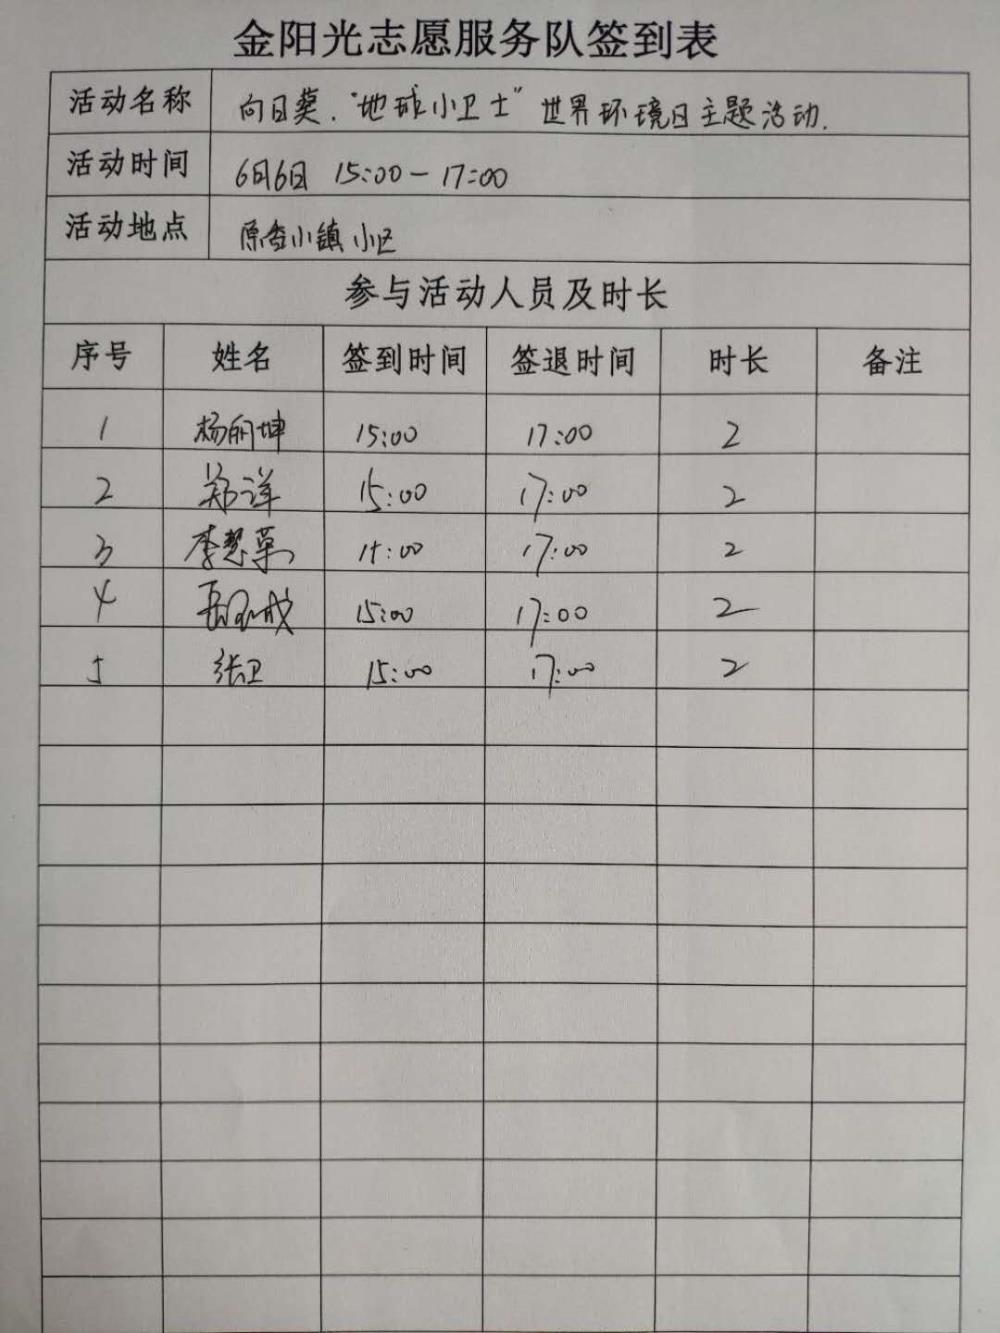 金阳光志愿服务队签到表
活动名称 向日葵.“地球小卫士”世界环境日主题活动.
活动时间 6月6日 15:00-17:00
活动地点 原香小镇小区
参与活动人员及时长
序号 姓名 签到时间 签退时间 时长 备注
1 15:00 17:00 2
2 郑洋 15:00 17:00 2
3 李慧 15:00 17:00 2
4 15:00 17:00 2
5 张卫 15:00 17:00 2